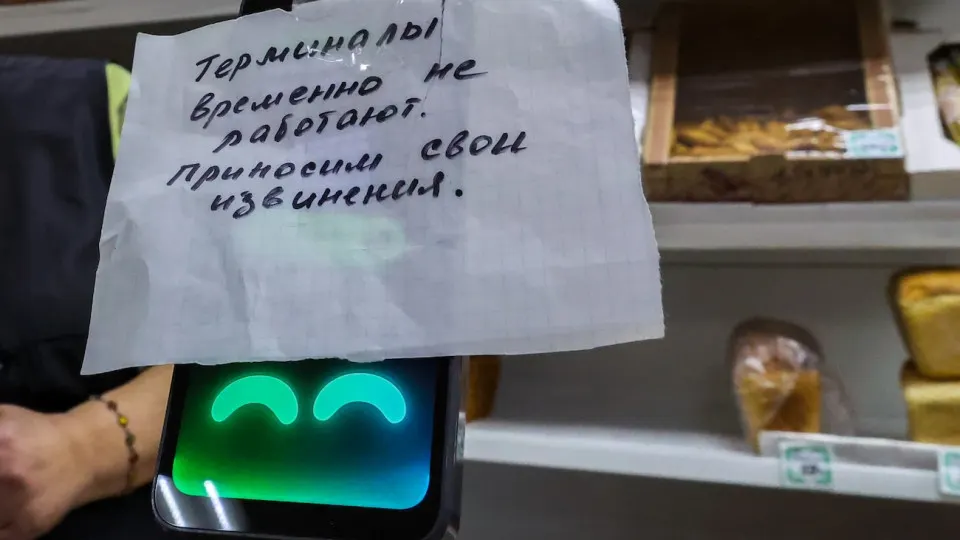 Терминалы
временно не
работают.
Приносим свои
извинения.